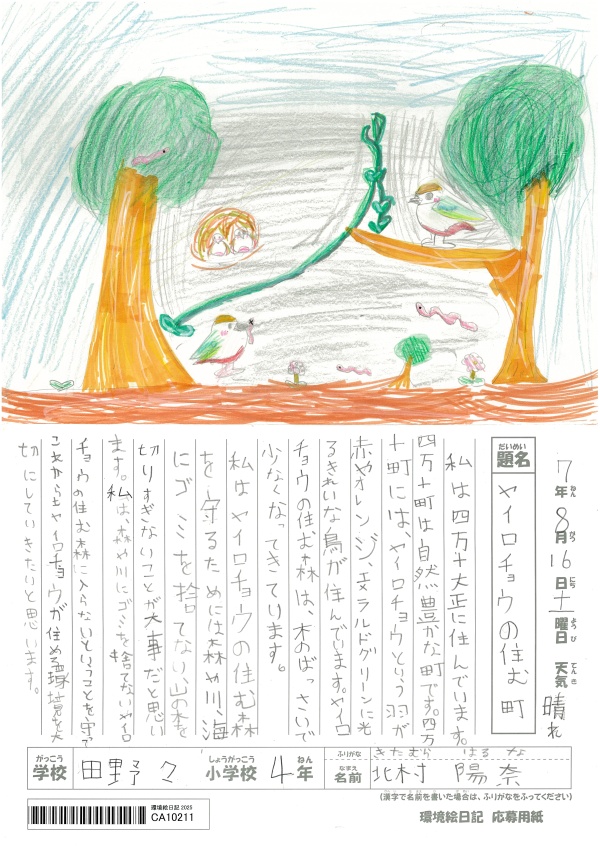 7年8月16日土曜日 天気 晴れ
ねん がつ にち ようび てんき
だいめい
題名 ヤイロチョウの住む町
私は四万十大正に住んでいます。
四万十町は自然豊かな町です。四万
十町には、ヤイロチョウという羽が
赤やオレンジ、エメラルドグリーンに光
るきれいな鳥が住んでいます。ヤイロ
チョウの住む森は、木のばっさいで
少なくなってきています。
私はヤイロチョウの住む森
を守るためには森や川、海
にゴミを捨てない、山の木を
切りすぎないことが大事だと思い
ます。私は、森や川にゴミを捨てないヤイロ
チョウの住む森に入らないということを守って
これからもヤイロチョウが住める環境を大
切にしていきたいと思います。
がっこう しょうがっこう ねん ふりがな きたむら はるな
学校 田野々 小学校 4年 なまえ 名前 北村 陽奈
(漢字で名前を書いた場合は、ふりがなをふってください)
環境絵日記 2025
CA10211
環境絵日記 応募用紙